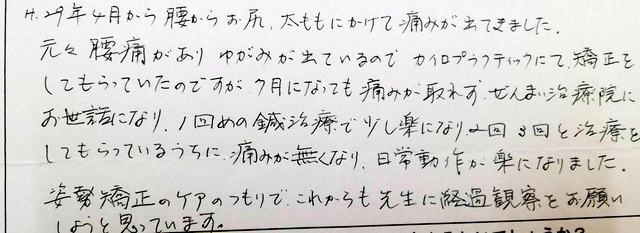 H.29年4月から腰からお尻、太ももにかけて痛みが出てきました。
元々腰痛があり ゆがみが出ているので カイロプラクティックにて、矯正を
してもらっていたのですが7月になっても痛みが取れず、ぜんまい治療院に
お世話になり、1回めの鍼治療で少し楽になり2回 3回と治療を
してもらっているうちに、痛みが無くなり、日常動作が楽になりました。
姿勢矯正のケアのつもりで、これからも先生に経過観察をお願い
しようと思っています。